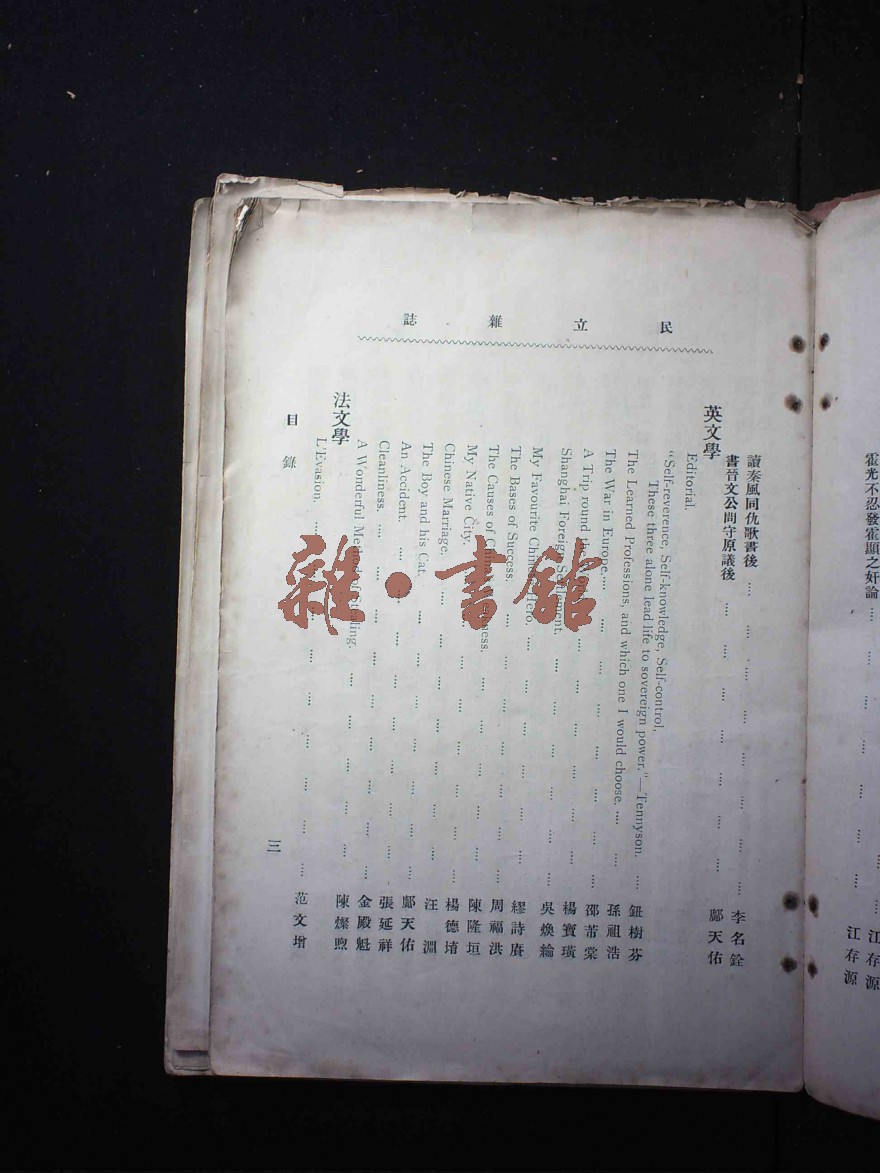 霍光不忍發霍顯之奸論 .... 江存源
江存源
民立雜誌
讀秦風同仇歌書後 .... .... .... .... .... .... .... 李名銓
書晉文公問守原議後 .... .... .... .... .... .... .... 鄺天佑
英文學
Editorial.
"Self-reverence, Self-knowledge, Self-control,
These three alone lead life to sovereign power."—Tennyson. .... 鈕樹芬
The Learned Professions, and which one I would choose. .... .... 孫祖浩
The War in Europe. .... .... .... .... .... .... .... 邵芾棠
A Trip round the .... .... .... .... .... .... 楊寶璜
Shanghai Foreign Settlement. .... .... .... .... .... .... 吳煥綸
My Favourite Chinese Hero. .... .... .... .... .... .... 繆詩賡
The Bases of Success. .... .... .... .... .... .... .... 周福洪
The Causes of China's Weakness. .... .... .... .... .... .... 陳隆垣
My Native City. .... .... .... .... .... .... .... 楊德堉
Chinese Marriage. .... .... .... .... .... .... .... 汪淵
The Boy and his Cat. .... .... .... .... .... .... .... 鄺天佑
An Accident. .... .... .... .... .... .... .... .... 張延祥
Cleanliness. .... .... .... .... .... .... .... .... 金殿魁
A Wonderful Method of Stealing. .... .... .... .... .... 陳燦煦
法文學
L'Evasion. .... .... .... .... .... .... .... .... 范文增
目錄
三
雜·書館